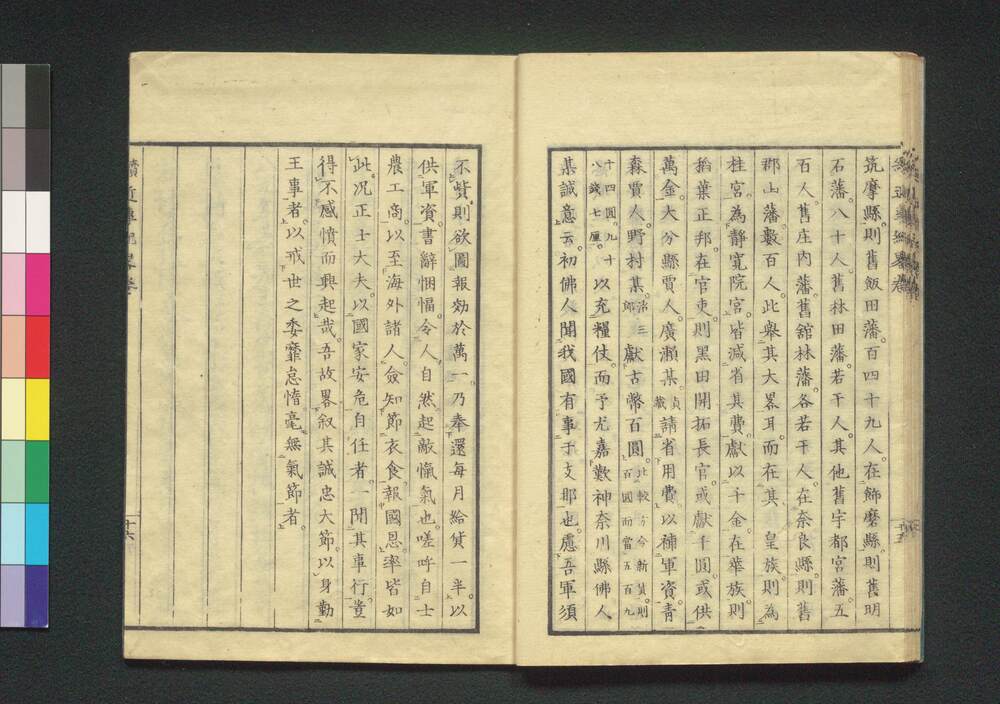 筑摩縣則舊飯田藩百四十九人在飾磨縣則舊明
石藩八十人舊林田藩若干人其他舊宇都宮藩五
百人舊庄内藩舊舘林藩各若干人在奈良縣則舊
郡山藩數百人此舉其大畧耳而在其 皇族則為
桂宮為靜寬院宮皆減省其費獻以千金在華族則
稻葉正邦在官吏則黑田開拓長官或獻千圓或供
萬金大分縣賈人廣瀨某貞藏請省用費以補軍資青
森賈人野村某治三郎獻古幣百圓比較于今新貨則上百圓而當五百九
十四圓九十八錢七厘以充糧仗而予尤嘉歎神奈川縣佛人
某誠意云初佛人聞我國有事于支那也慮吾軍須
不貲則欲圖報効於萬一乃奉還每月給貲一半以
供軍資書辭悃愊令人自然起敵愾氣也嗟呼自士
農工商以至海外諸人僉知節衣食報國恩率皆如
此況正士大夫以國家安危自任者一聞其事行豈
得不感憤而興起哉吾故畧叙其誠忠大節以身勤
王事者以戒世之委靡怠惰毫無氣節者
十六